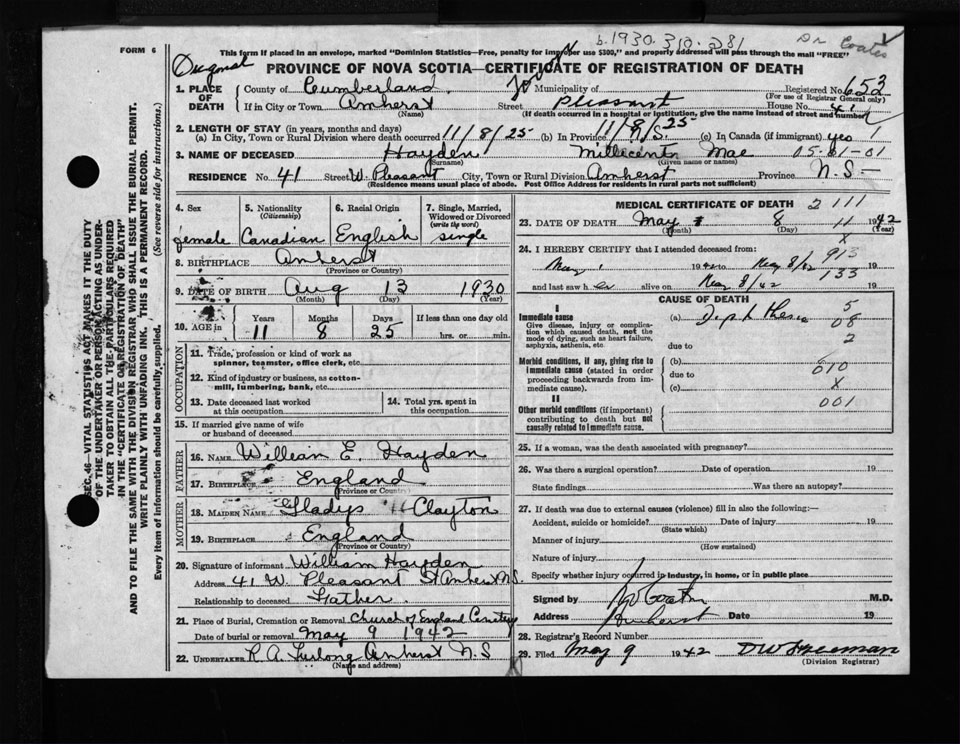 b. 1930. 310. 281
Dr Coates
FORM 6
This form if placed in an envelope, marked "Dominion Statistics—Free, penalty for improper use $300," and properly addressed will pass through the mail "FREE"
Original
PROVINCE OF NOVA SCOTIA—CERTIFICATE OF REGISTRATION OF DEATH
1. PLACE OF DEATH
County of Cumberland. Municipality of Registered No. 653
(For use of Registrar General only)
If in City or Town Amherst Street Pleasant House No. 41
(Name) (If death occurred in a hospital or institution, give the name instead of street and number)
2. LENGTH OF STAY (in years, months and days)
(a) In City, Town or Rural Division where death occurred 11/8/25 (b) In Province 11/8/25 N.S. (c) In Canada (if immigrant) yes 1
3. NAME OF DECEASED Hayden Millicent Mae 05-01-01
(Surname) (Given name or names)
RESIDENCE No. 41 Street W. Pleasant City, Town or Rural Division Amherst Province N.S—
(Residence means usual place of abode. Post Office Address for residents in rural parts not sufficient)
4. Sex
female
5. Nationality
(Citizenship)
Canadian
6. Racial Origin
English
7. Single, Married, Widowed or Divorced
(write the word)
single
8. BIRTHPLACE Amherst
(Province or Country)
9. DATE OF BIRTH Aug 13 1930
(Month) (Day) (Year)
10. AGE in Years Months Days If less than one day old
11 8 25 hrs. or min.
OCCUPATION
11. Trade, profession or kind of work as
spinner, teamster, office clerk, etc.
12. Kind of industry or business, as cotton-
mill, lumbering, bank, etc.
13. Date deceased last worked
at this occupation
14. Total yrs. spent in
this occupation
15. If married give name of wife
or husband of deceased
FATHER
16. NAME William E. Hayden
17. BIRTHPLACE England
(Province or Country)
MOTHER
18. MAIDEN NAME Gladys H Clayton
19. BIRTHPLACE England
(Province or Country)
20. Signature of informant William Hayden
Address 41 W. Pleasant St Amherst N.S.
Relationship to deceased Father
21. Place of Burial, Cremation or Removal Church of England Cemetery
Date of burial or removal May 9 1942
22. UNDERTAKER R. A. Furlong Amherst N.S
(Name and address)
MEDICAL CERTIFICATE OF DEATH 2 111
23. DATE OF DEATH May 8 11 1942
(Month) (Day) (Year)
X
24. I HEREBY CERTIFY that I attended deceased from: 913
May 1 1942 to May 8/42 133 19
and last saw her alive on May 8/42 19
CAUSE OF DEATH
I
Immediate cause
Give disease, injury or complication which caused death, not the mode of dying, such as heart failure, asphyxia, asthenia, etc.
(a) Diphtheria 5
08
2
due to
Morbid conditions, if any, giving rise to immediate cause (stated in order proceeding backwards from immediate cause).
(b)
due to 010
(c) X
II
001
Other morbid conditions (if important) contributing to death but not causally related to immediate cause.
25. If a woman, was the death associated with pregnancy?
26. Was there a surgical operation? Date of operation 19
State findings Was there an autopsy?
27. If death was due to external causes (violence) fill in also the following:—
Accident, suicide or homicide? Date of injury 19
(State which)
Manner of injury
(How sustained)
Nature of injury
Specify whether injury occurred in industry, in home, or in public place
Signed by Coates M.D.
Address Amherst Date 19
28. Registrar's Record Number
29. Filed May 9 1942 D W Freeman
(Division Registrar)
SEC. 46—VITAL STATISTICS ACT MAKES IT THE DUTY
OF THE UNDERTAKER OR PERSON ACTING AS UNDER-
TAKER TO OBTAIN ALL THE PARTICULARS REQUIRED
IN THE "CERTIFICATE OF REGISTRATION OF DEATH"
AND TO FILE THE SAME WITH THE DIVISION REGISTRAR WHO SHALL ISSUE THE BURIAL PERMIT.
WRITE PLAINLY WITH UNFADING INK. THIS IS A PERMANENT RECORD.
Every item of information should be carefully supplied. (See reverse side for instructions.)